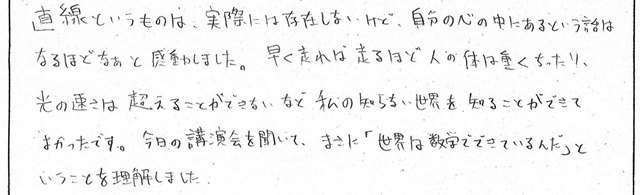 直線というものは、実際には存在しないけど、自分の心の中にあるという話は
なるほどなぁと感動しました。早く走れば走るほど人の体は重くなったり、
光の速さは超えることができないなど私の知らない世界を知ることができて
よかったです。今日の講演会を聞いて、まさに「世界は数学でできているんだ」と
いうことを理解しました